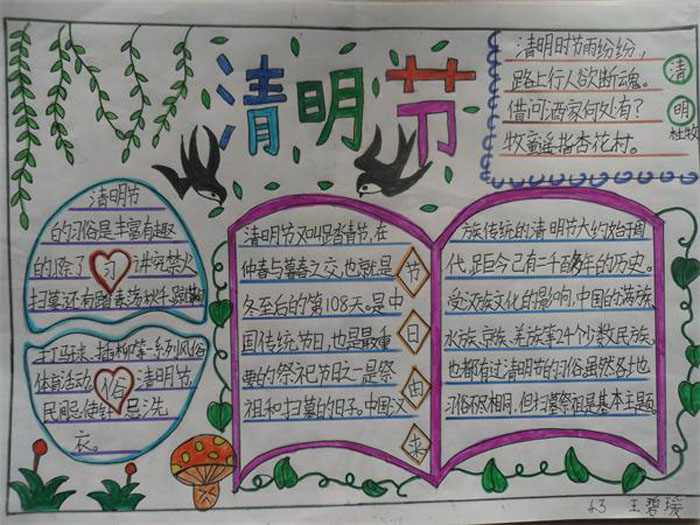 清明节
清明时节雨纷纷，
路上行人欲断魂。
借问酒家何处有？
牧童遥指杏花村。
清
明
杜牧
清明节
的习俗是丰富有趣
的,除了 讲究禁火
扫墓,还有踏青荡秋千、蹴鞠
习
打马球、插柳等一系列风俗
体育活动。清明节,
民间忌使针,忌洗
衣。
俗
清明节又叫踏青节,在
仲春与暮春之交,也就是
冬至后的第108天。是中
国传统节日,也是最重
要的祭祀节日之一是祭
祖和扫墓的日子。中国汉
节
日
由
来
族传统的清明节大约始于周
代,距今已有二千多年的历史。
受汉族文化的影响,中国的满族、
水族、京族、羌族等24个少数民族,
也都有过清明节的习俗。虽然各地
习俗不尽相同,但扫墓祭祖是基本主题。
4.3 王碧瑗